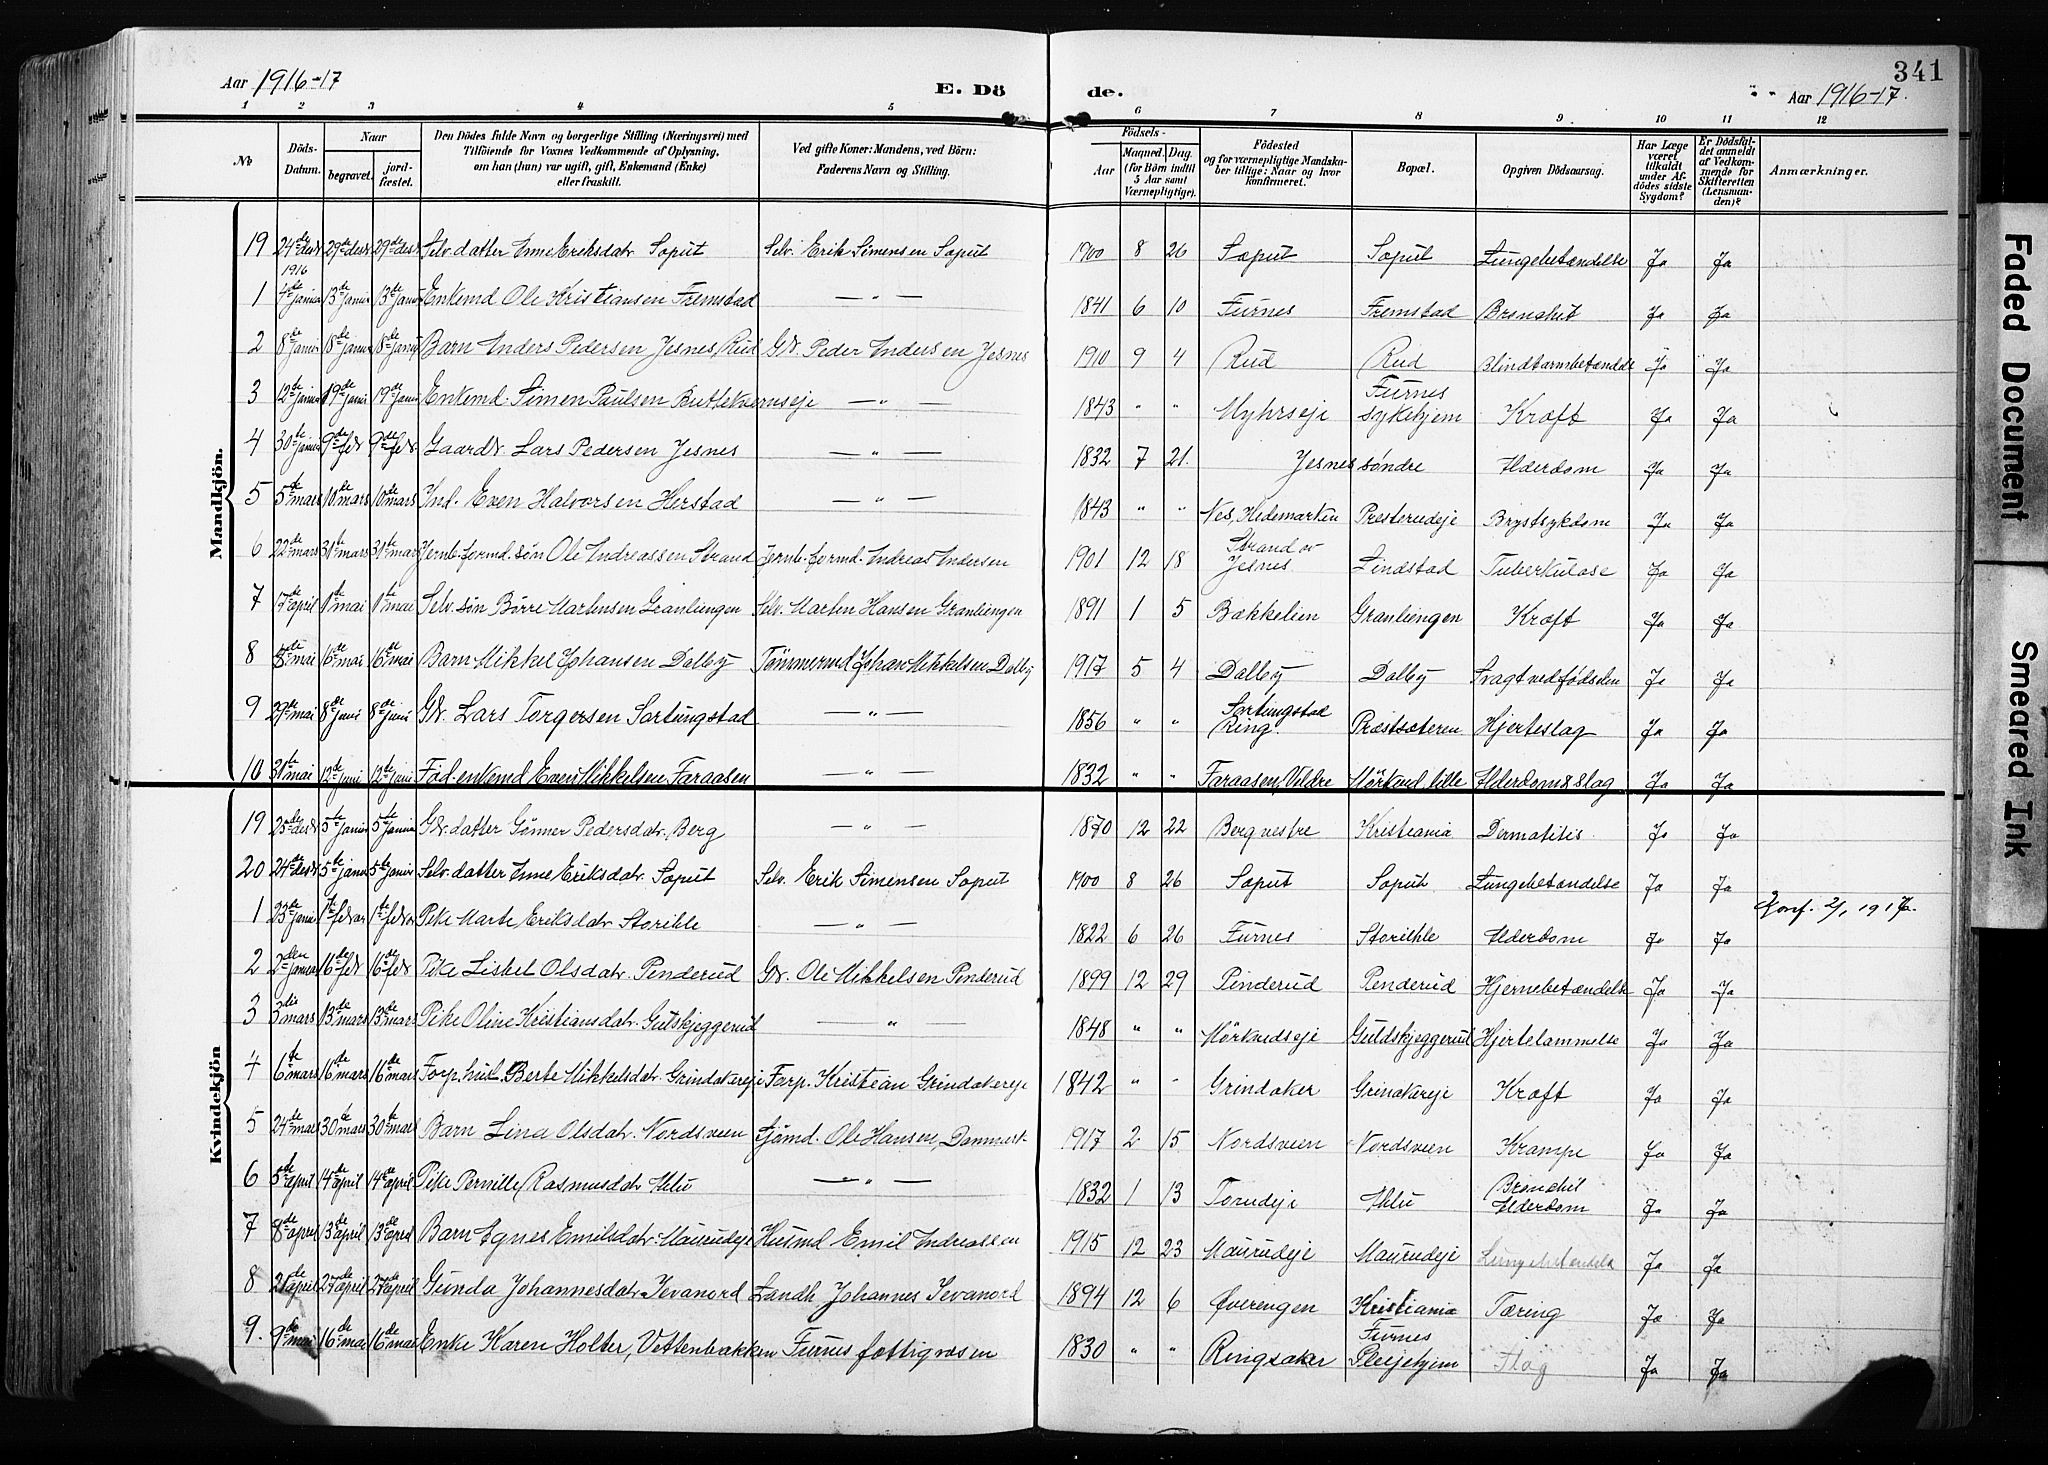 Aar 1916-17 E. Dö de. Aar 1916-17. 341
1 2 3 4 5 6 7 8 9 10 11 12
No Döds-Datum. Naar begravet. jord-fæstet. Den Dödes fulde Navn og borgerlige Stilling (Næringsvei) med Tilföiende for Voxnes Vedkommende af Oplysning, om han (hun) var ugift, gift, Enkemand (Enke) eller fraskilt. Ved gifte Koner: Mandens, ved Börn: Faderens Navn og Stilling. Födsels- Aar Maaned. Dag. (for Börn indtil 5 Aar samt Værnepligtige). Födested og for værnepligtige Mandskaber tillige: Naar og hvor konfirmeret. Bopæl. Opgiven Dödsaarsag. Har Læge været tilkaldt under Afdödes sidste Sygdom? Er Dödsfaldet anmeldt af Vedkommende for Skifteretten (Lensmanden)? Anmærkninger.
Mandkjön.
19 24de desbr 29de desbr 29de desbr Selv. datter Anne Eriksdatr Soput Selv. Erik Simensen Soput 1900 8 26 Soput Soput Lungebetændelse Ja Ja
1916
1 4de januar 13de januar 13de januar Enkemd Ole Kristiansen Fremstad — " — 1841 6 10 Furnes Fremstad Bronchit Ja Ja
2 8de januar 18de januar 18de januar Barn Anders Pedersen Jesnes, Rud Gbr. Peder Andersen Jesnes 1910 9 4 Rud Rud Blindtarmbetændelse Ja Ja
3 12te januar 19de januar 19de januar Enkemd. Simen Paulsen Buttekvernseje — " — 1843 " " Myhrseje Furnes sykehjem Kræft Ja Ja
4 30te januar 9de febr 9de febr Gaardbr. Lars Pedersen Jesnes — " — 1832 7 21. Jesnes søndre Alderdom Ja Ja
5 5te mars 10de mars 10de mars Ind. Even Halvorsen Herstad — " — 1843 " " Nes, Hedemarken Presterudeje Brystsykdom Ja Ja
6 22de mars 31te mars 31te mars Jernb. formd. søn Ole Andreassen Strand Jernb. formd. Andreas Andersen 1901 12 18 Strand av Jesnes Lindstad Tuberkulose Ja Ja
7 17de april 1te mai 1te mai Selv. søn Børre Martinsen Granliengen Selv. Marten Hansen Granliengen 1891 1 5 Bækkelien Granliengen Kræft Ja Ja
8 8de mai 16de mai 16de mai Barn Mikkel Johansen Dalby Tømmermd Johan Mikkelsen Dalby 1917 5 4 Dalby Dalby Svagt ved fødselen Ja Ja
9 29de mai 8de juni 8de juni Gbr. Lars Torgersen Sortungstad — " — 1856 " " Sortungstad Ring. Præstsæteren Hjerteslag Ja Ja
10 31te mai 12te juni 12te juni Fød. enkemd Even Mikkelsen Faraasen — " — 1832 " " Faraasen, Veldre Mörkved lille Alderdom & slag Ja Ja
Kvindekjön
19 25de desbr 5te januar 5te januar Gbr. datter Gønner Pedersdatr, Berg — " — 1870 12 22 Berg vestre Kristiania Dermatitis Ja Ja
20 24de desbr 5te januar 5te januar Selv. datter Anne Eriksdatr. Soput Selv. Erik Simensen Soput 1900 8 26 Soput Soput Lungebetændelse Ja Ja
1 23de januar 1te febr 1te febr Pike Marte Eriksdatr Storihle — " — 1822 6 26 Furnes Storihle Alderdom Ja Ja Jonf. 2/1 1917.
2 2den januar 16de febr 16de febr Pike Lisbet Olsdatr. Penderud Gbr. Ole Mikkelsen Penderud 1899 12 29 Penderud Penderud Hjernebetændelse Ja Ja
3 3die mars 13de mars 13de mars Pike Oline Kristiansdatr. Gutskjeggerud — " — 1848 " " Mörkvedseje Guldskjeggerud Hjertelammelse Ja Ja
4 6te mars 16de mars 16de mars Forp. hust. Berte Mikkelsdatr. Grindakereje Forp. Kristian Grindakereje 1842 " " Grindaker Grinakereje Kræft Ja Ja
5 24de mars 30te mars 30te mars Barn Lina Olsdatr. Nordsveen Sjømd. Ole Hansen, Danmark 1917 2 15 Nordsveen Nordsveen Krampe Ja Ja
6 5te april 14de april 14de april Pike Pernille Rasmusdatr Ihlu — " — 1832 1 13 Torudeje Ihlu Bronchit Alderdom Ja Ja
7 8de april 13de april 13de april Barn Agnes Emilsdatr. Maurudeje Husmd Emil Andreassen 1915 12 23 Maurudeje Maurudeje Lungebetændelse Ja Ja
8 21de april 27de april 27de april Gunda Johannesdatr. Jevanord Landh. Johannes Jevanord 1894 12 6 Øverengen Kristiania Tæring Ja Ja
9. 9de mai 16de mai 16de mai Enke Karen Holter, Vettenbakken Furnes fattigvæsen 1830 " " Ringsaker Furnes Pleiehjem Slag Ja Ja
Faded Document
Smeared Ink